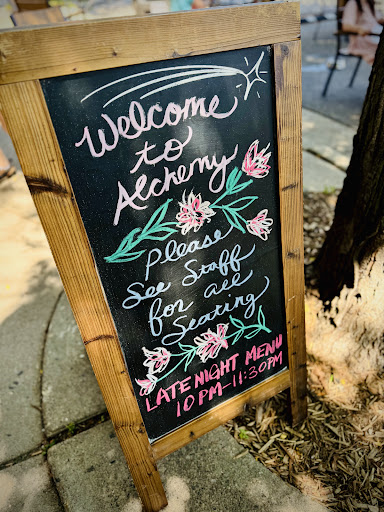 Welcome
to
Alchemy
Please
See Staff
for all
Seating
LATE NIGHT MENU
10 PM - 11:30 PM